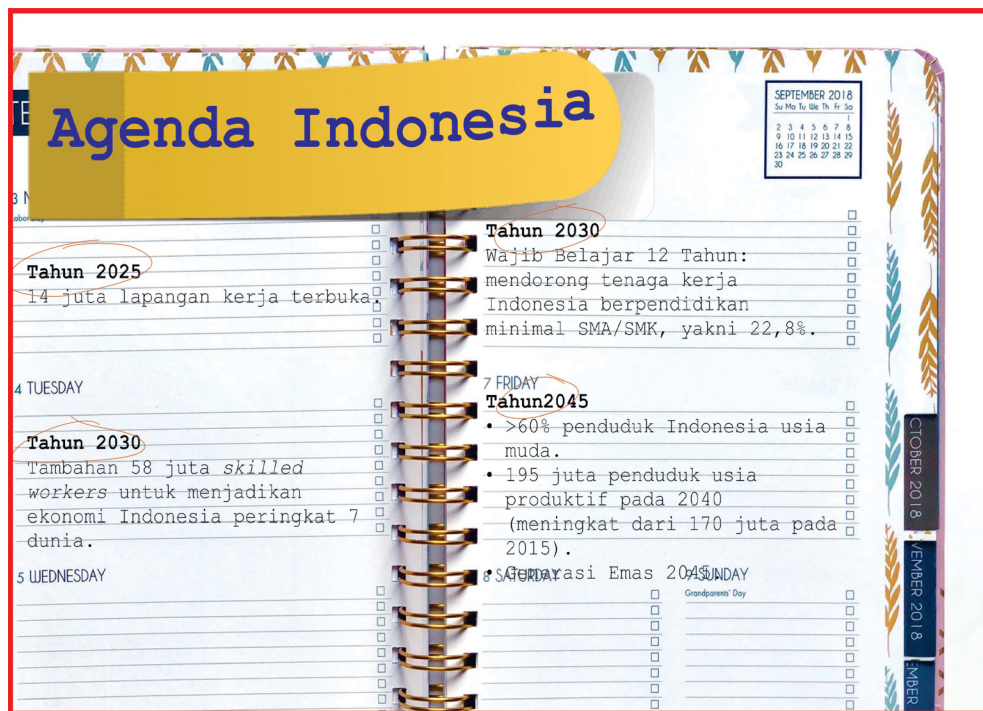 Agenda Indonesia
SEPTEMBER 2018
Su Mo Tu We Th Fr Sa
1
2 3 4 5 6 7 8
9 10 11 12 13 14 15
16 17 18 19 20 21 22
23 24 25 26 27 28 29
30
Tahun 2025
14 juta lapangan kerja terbuka.
4 TUESDAY
Tahun 2030
Tambahan 58 juta skilled
workers untuk menjadikan
ekonomi Indonesia peringkat 7
dunia.
5 WEDNESDAY
Tahun 2030
Wajib Belajar 12 Tahun:
mendorong tenaga kerja
Indonesia berpendidikan
minimal SMA/SMK, yakni 22,8%.
7 FRIDAY
Tahun2045
• >60% penduduk Indonesia usia
muda.
• 195 juta penduduk usia
produktif pada 2040
(meningkat dari 170 juta pada
2015).
• Generasi Emas 2045.
8 SATURDAY
9 SUNDAY
Grandparents' Day
CTOBER 2018
VEMBER 2018
EMBER